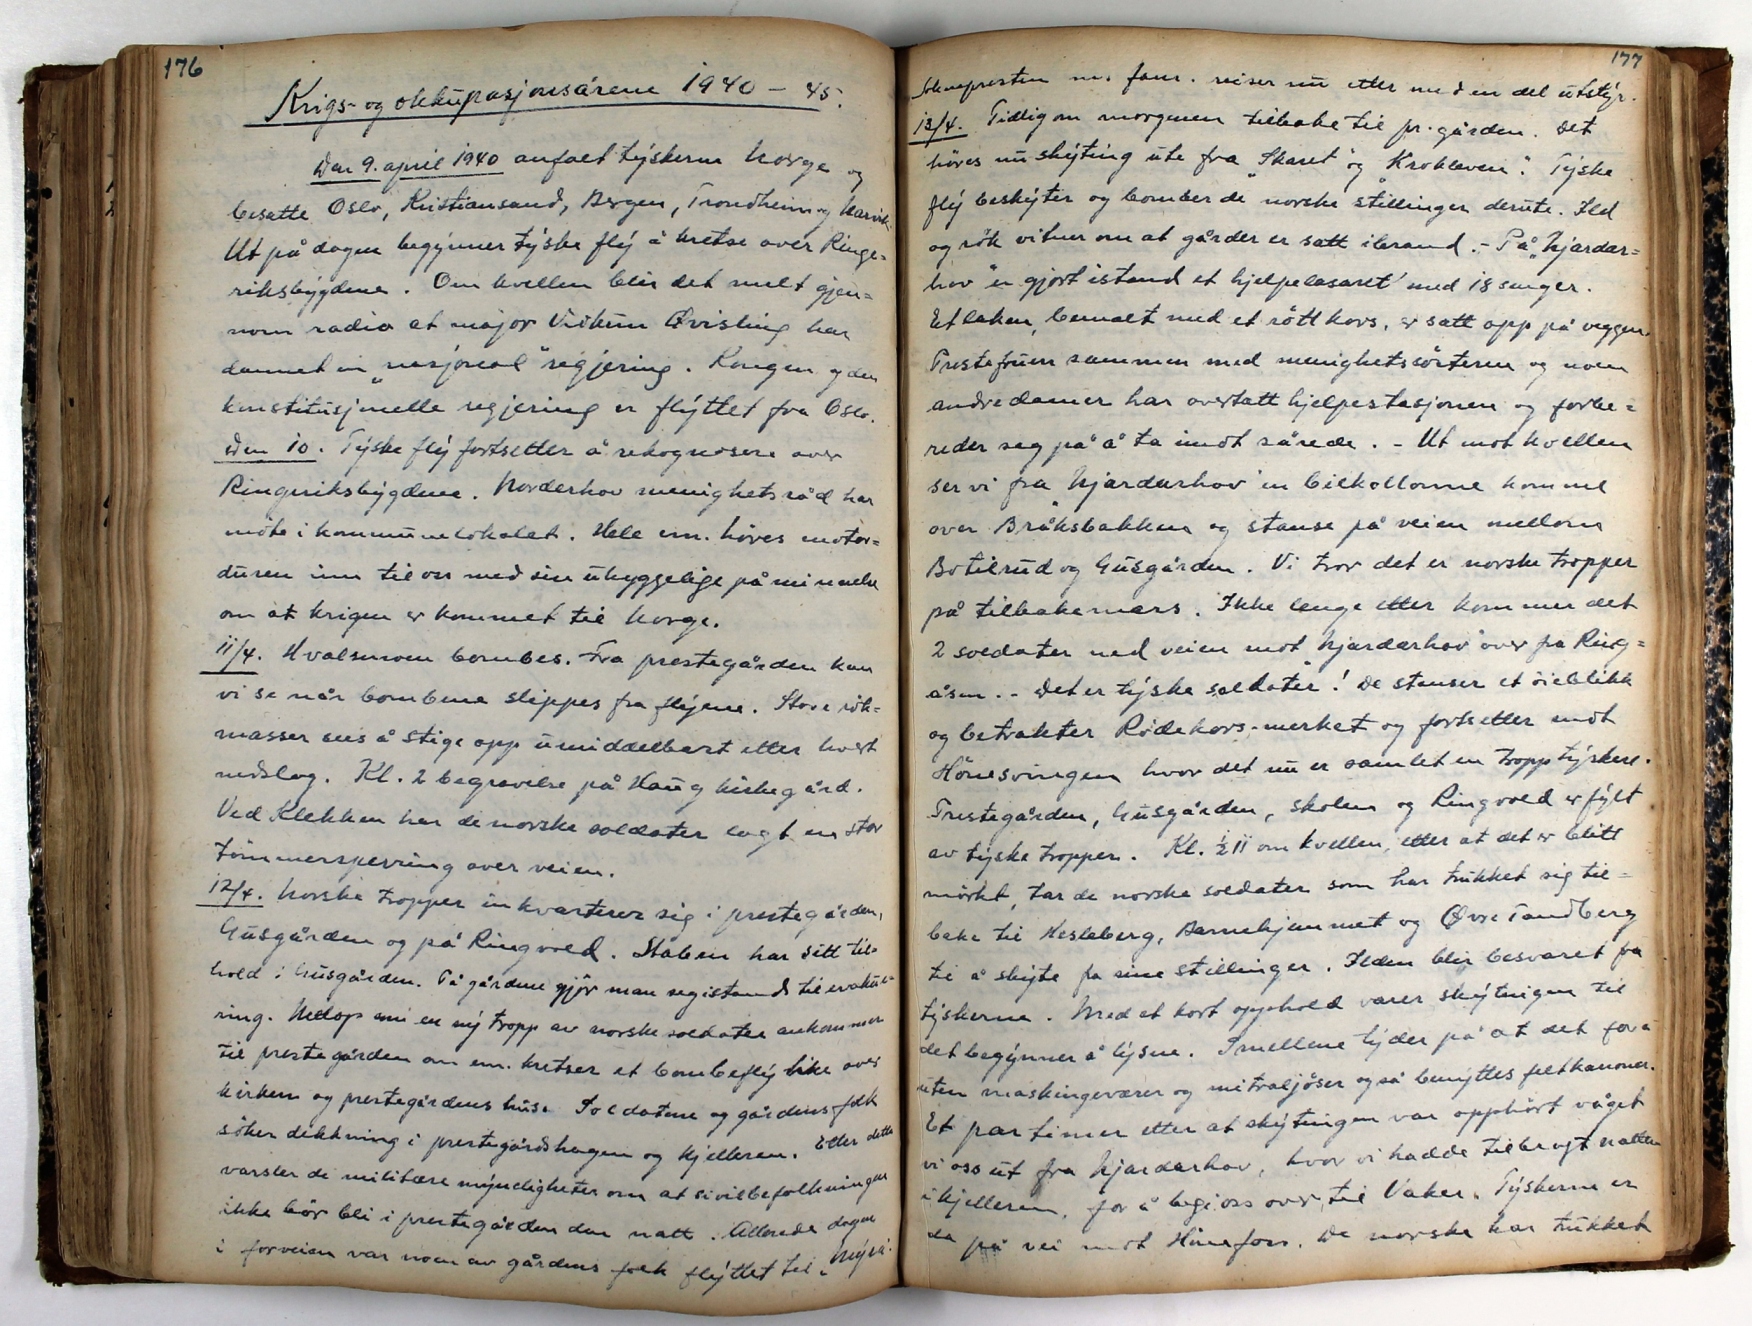 176
Krigs- og okkupasjonsårene 1940 – 45.
Den 9. april 1940 anfalt tyskerne Norge og
besatte Oslo, Kristiansand, Bergen, Trondheim og Narvik.
Ut på dagen begynner tyske fly å kretse over Ringe=
riksbygdene. Om kvellen blir det melt gjen=
nom radio at major Vidkun Qvisling har
dannet en „nasjonal" regjering. Kongen og den
konstitusjonelle regjering er flyttet fra Oslo.
Den 10. Tyske fly fortsetter å rekognosere over
Ringeriksbygdene. Norderhov menighetsråd har
møte i kommunelokalet. Hele em. høres motor=
duren inn til oss med sin uhyggelige påminnelse
om at krigen er kommet til Norge.
11/4. Hvalsmoen bombes. Fra prestegården kan
vi se når bombene slippes fra flyene. Store røk=
masser sees å stige opp umiddelbart etter hvert
nedslag. Kl. 2 begravelse på Haug kirkegård.
Ved Klekken har de norske soldater lagt en stor
tømmersperring over veien.
12/4. Norske tropper innkvarterer sig i prestegården,
Gusgården og på Ringvold. Staben har sitt til=
hold i Gusgården. På gårdene gjør man seg istand til evakue=
ring. Netop som en ny tropp av norske soldater ankommer
til prestegården om em. kretser et bombefly like over
kirken og prestegårdens hus. Soldatene og gårdens folk
søker dekkning i prestegårdshagen og kjelleren. Etter dette
varsler de militære myndigheter om at sivilbefolkningen
ikke bør bli i prestegården den natt. Allerede dagen
i forveien var noen av gårdens folk flyttet til
177
Soknepresten m. fam. reiser nu etter med en del utstyr.
13/4. Tidlig om morgenen tilbake til pr.gården. Det
høres nu skyting ute fra „Skaret" og „Krokleven". Tyske
fly beskyter og bomber de norske stillinger derute. Ild
og røk vitner om at gårder er satt i brand. – På „Njardar=
hov" er gjort istand et hjelpelasaret med 18 senger.
Et laken, bemalt med et rött kors, er satt opp på veggen.
Prestefruen sammen med menighetssøsteren og noen
andre damer har overtatt hjelpestasjonen og forbe=
reder seg på å ta imot sårede. – Ut mot kvellen
ser vi fra „Njardarhov" en bilkollonne komme
over Bråksbakken og stanse på veien mellom
Botilrud og Gusgården. Vi tror det er norske tropper
på tilbakemars. Ikke lenge etter kommer det
2 soldater ned veien mot „Njardarhov" over fra Ring=
åsen. – Det er tyske soldater! De stanser et öieblikk
og betrakter Rødekors-merket og fortsetter mot
Hønesvingen hvor det nu er samlet en tropp tyskere.
Prestegården, Gusgården, skolen og Ringvold er fylt
av tyske tropper. Kl. ½ 11 om kvellen, etter at det er blitt
mörkt, tar de norske soldater som har trukket sig til=
bake til Hesleberg, Barnehjemmet og Øvre Tandberg
til å skyte fra sine stillinger. Ilden blir besvaret fra
tyskerne. Med et kort opphold varer skytningen til
det begynner å lysne. Smellene tyder på at det foru=
uten maskingeværer og mitraljøser også benyttes feltkanoner.
Et par timer etter at skytningen var opphørt våget
vi oss ut fra Njardarhov, hvor vi hadde tilbragt natten
i kjelleren, for å begi oss over til Vaker. Tyskerne er
da på vei mot Hønefoss. De norske har trukket